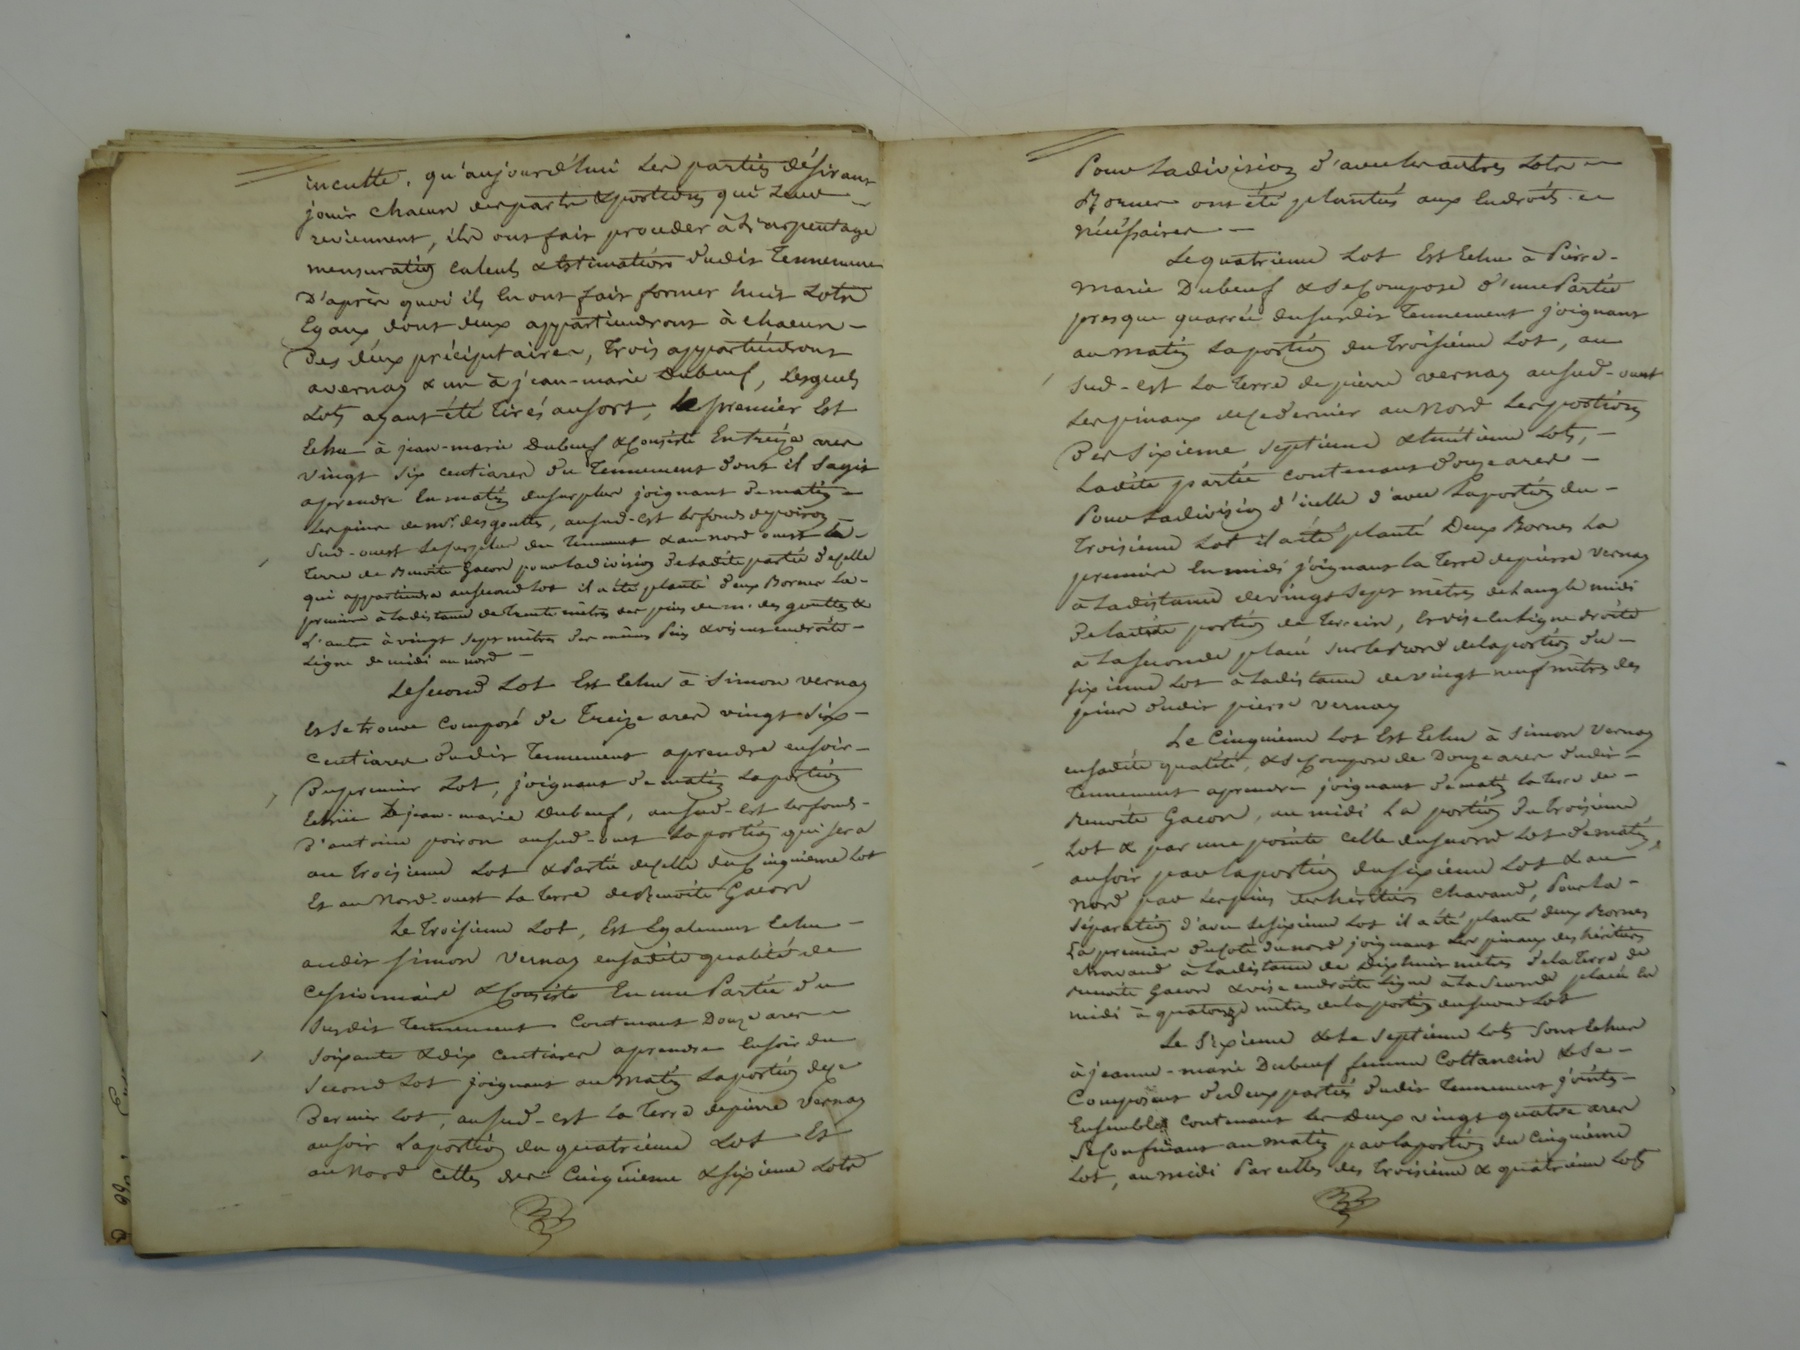 inculte. qu'aujourd'hui les partiés désirant
jouir chacun des parts & portions qui leur
reviennent, ils ont fait proceder à L'arpentage
mensuration calculs & Estimations dudit Tennement
D'après quoi ils En ont fait former huit Lots
Egaux dont deux appartiendront à chacun
Des deux préciputaires, trois appartiendront
a vernay & un à jean-marie Dubeuf, Lesquels
Lots ayant été tirés au sort, Le premier Est
Echu à jean-marie Dubeuf & Consiste En treize ares
vingt six centiares du Tennement dont il S'agit
aprendre En matin du surplus joignant de matin
Les pins de mr. des gouttes, au sud-est les fonds de poiron
Sud-ouest Le surplus du Tennement & au nord ouest La
terre de Benoite Gacon pour La division de Ladite partié d'icelle
qui appartiendra au second Lot il a été planté deux Bornes La
premiere à La distance de trente mètres des pins de m. des gouttes &
L'autre à vingt sept mètres des mêmes pins & visent en droite
Ligne de midi au nord
Le second Lot Est Echu à Simon vernay
Et Se trouve Composé de Treize ares vingt Six
Centiares dudit Tennement aprendre en soir
Du premier Lot, joignant de matin La portion
Echüe à jean-marie Dubeuf, au sud-est les fonds
d'antoine poiron au sud-ouest La portion qui sera
au Troisieme Lot & Partie de Celle du Cinquieme Lot
Et au Nord-ouest La terre de Benoite Gacon
Le Troisieme Lot, Est Egalement Echu
audit Simon Vernay en sadite qualité de
Cessionnaire & Consiste En une Partie du
Susdit Tennement Contenant Douze ares
Soixante & dix centiares aprendre En soir du
Second Lot joignant au matin La portion de Ce
Dernier Lot, au sud-est La Terre de pierre Vernay
au soir La portion du quatrieme Lot Et
au Nord Celles des Cinquieme & sixieme Lots
Pour La division d'avec les autres Lots
Bornes ont été plantés aux Endroits
nécéssaires
Le quatrieme Lot Est Echu à Pierre
marie Dubeuf & Se Compose d'une Partie
presque quarrée du susdit Tennement joignant
au matin La portion du Troisieme Lot, au
Sud-est La terre de pierre vernay au sud-ouest
Les pinaux de Ce dernier au Nord Les portions
Des Sixieme septieme & huitieme Lots,
Ladite partie contenant Douze ares
Pour La division d'icelle d'avec La portion du
Troisieme Lot il a été planté Deux Bornes La
premiere En midi joignant La Terre de pierre Vernay
à La distance de vingt sept mètres de L'angle midi
De Ladite portion de terrein, Et vise En Ligne droite
à La seconde placé sur Le Bord de La portion du
sixieme Lot à La distance de vingt neuf mètres des
pins dudit pierre vernay
Le Cinquieme Lot Est Echu à Simon Vernay
en sadite qualité, & Se Compose de Douze ares dudit
Tennement aprendre joignant de matin La terre de
Benoite Gacon, au midi La portion du troisieme
Lot & par une pointe celle du second Lot de matin,
au soir par La portion du sixieme Lot & au
Nord par Les pins des héritiers Chavand, Pour La
Séparation d'avec Le sixieme Lot il a été planté deux Bornes
La première du Coté du nord joignant Les pinaux des héritiers
Chavand à La distance de Dix huit mètres de La Terre de
Benoite Gacon & vise en droite Ligne à La Seconde placé En
midi à quatorze mètres de La portion du second Lot
Le Sixieme & Le Septieme Lots Sont Echus
à jeanne-marie Dubeuf femme Cottancin & Se
Composent de deux partiés dudit Tennement jointes
Ensembles contenant Les Deux vingt quatre ares
Se Confinant au matin par La portion du Cinquieme
Lot, au midi Par celles des Troisieme & quatrieme Lots